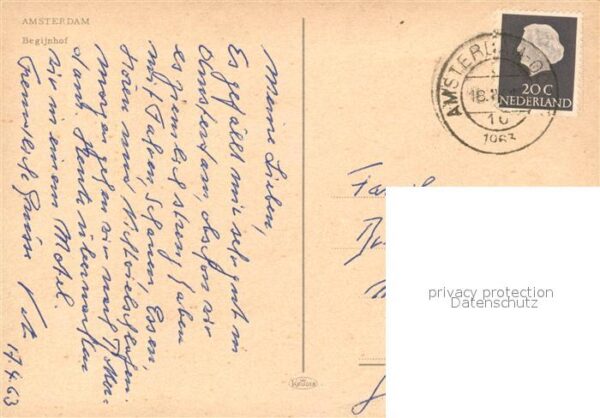 AMSTERDAM
Begijnhof
Meine Lieben,
Es gefällt mir sehr gut in
Amsterdam, obschon wir
es ziemlich streng haben
mit Fahren, Schauen, Essen,
Hören und Nichtvielschlafen.
Morgen gehen wir nach
Heute übernachten
wir in einem Motel.
Freundliche Grüsse
17.4.63
AMSTERDAM
18.
1963
20 C
NEDERLAND
KRÜGER
privacy protection
Datenschutz